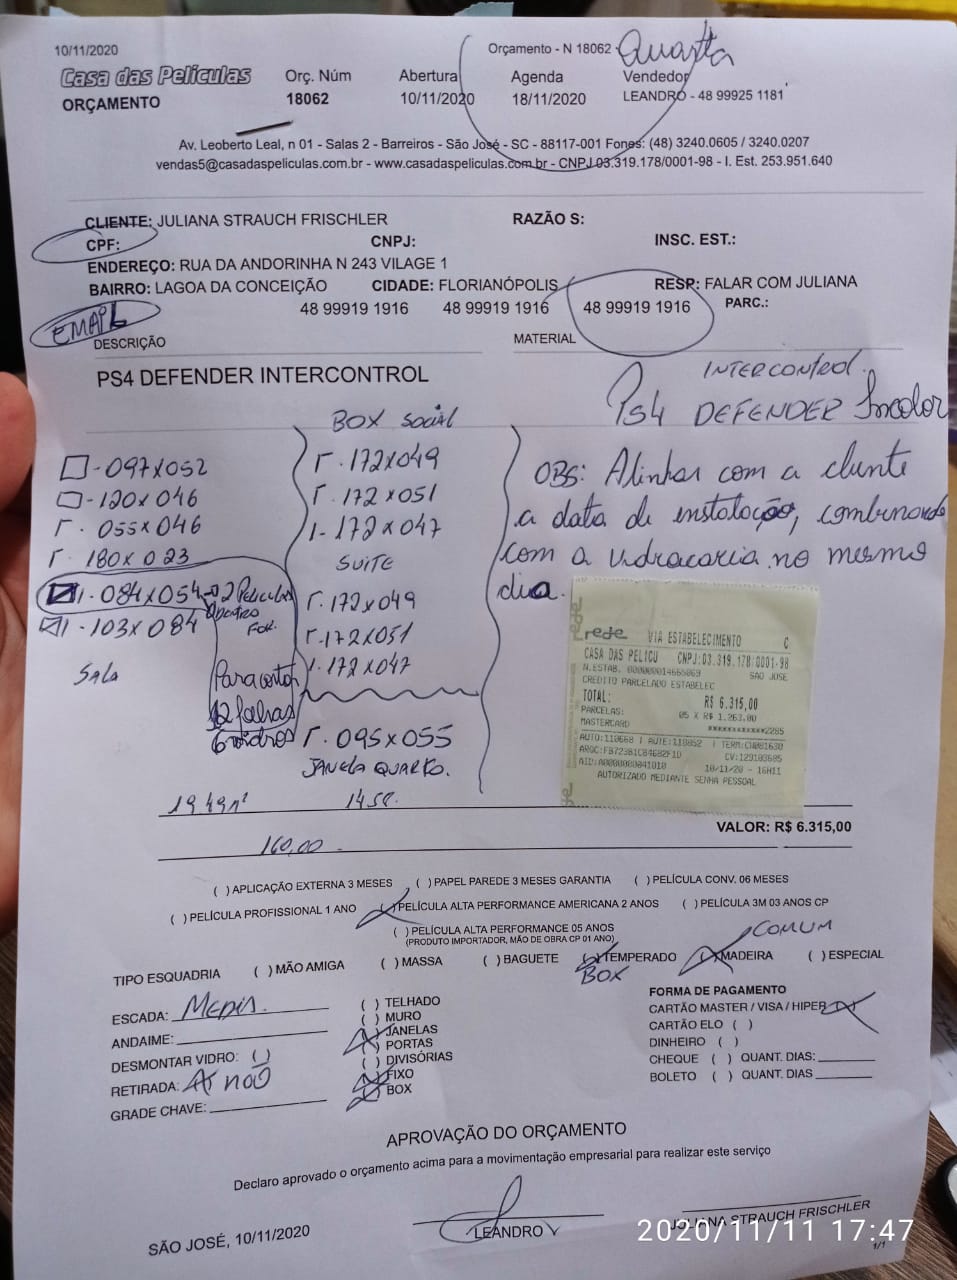 10/11/2020
Orçamento - N 18062 - Quarta
Casa das Películas
Orç. Núm Abertura Agenda Vendedor
ORÇAMENTO 18062 10/11/2020 18/11/2020 LEANDRO - 48 99925 1181
Av. Leoberto Leal, n 01 - Salas 2 - Barreiros - São José - SC - 88117-001 Fones: (48) 3240.0605 / 3240.0207
vendas5@casadaspeliculas.com.br - www.casadaspeliculas.com.br - CNPJ 03.319.178/0001-98 - I. Est. 253.951.640
CLIENTE: JULIANA STRAUCH FRISCHLER RAZÃO S:
CPF: CNPJ: INSC. EST.:
ENDEREÇO: RUA DA ANDORINHA N 243 VILAGE 1
BAIRRO: LAGOA DA CONCEIÇÃO CIDADE: FLORIANÓPOLIS RESP: FALAR COM JULIANA
48 99919 1916 48 99919 1916 48 99919 1916 PARC.:
EMAIL
DESCRIÇÃO MATERIAL
PS4 DEFENDER INTERCONTROL
INTERCONTROL.
PS4 DEFENDER Incolor
BOX SOCIAL
- 097X052
- 120X046
055X046
180X023
1. 084X054 - 02 Películas
1 - 103X084
SALA
Para
12 folhas
6 vidros
172X049
172X051
1- 172X047
SUITE
172X049
172X051
1. 172X047
095X055
JANELA QUARTO.
OBS: Alinhar com a cliente
a data de instalação, combinando
com a vidraçaria no mesmo
dia.
rede VIA ESTABELECIMENTO C
CASA DAS PELICU CNPJ:03.319.178/0001-98
N.ESTAB. 000000014665069 SAO JOSE
CREDITO PARCELADO ESTABELEC
TOTAL: R$ 6.315,00
PARCELAS: 05 X R$ 1.263,00
MASTERCARD ************2285
AUTO:110668 AUTE:110852 TERM:CW001630
CV:129103605
AID:A0000000041010 10/11/20 - 16H11
AUTORIZADO MEDIANTE SENHA PESSOAL
19.49m²
VALOR: R$ 6.315,00
160,00
( ) APLICAÇÃO EXTERNA 3 MESES ( ) PAPEL PAREDE 3 MESES GARANTIA ( ) PELÍCULA CONV. 06 MESES
( ) PELÍCULA PROFISSIONAL 1 ANO (X) PELÍCULA ALTA PERFORMANCE AMERICANA 2 ANOS ( ) PELÍCULA 3M 03 ANOS CP
( ) PELÍCULA ALTA PERFORMANCE 05 ANOS
(PRODUTO IMPORTADOR, MÃO DE OBRA CP 01 ANO)
COMUM
TIPO ESQUADRIA ( ) MÃO AMIGA ( ) MASSA ( ) BAGUETE (X) TEMPERADO (X) MADEIRA ( ) ESPECIAL
BOX
ESCADA: MEDIA.
ANDAIME:
DESMONTAR VIDRO: ( )
RETIRADA: não
GRADE CHAVE:
( ) TELHADO
( ) MURO
(X) JANELAS
( ) PORTAS
( ) DIVISÓRIAS
(X) FIXO
(X) BOX
FORMA DE PAGAMENTO
CARTÃO MASTER / VISA / HIPER (X)
CARTÃO ELO ( )
DINHEIRO ( )
CHEQUE ( ) QUANT. DIAS:
BOLETO ( ) QUANT. DIAS
APROVAÇÃO DO ORÇAMENTO
Declaro aprovado o orçamento acima para a movimentação empresarial para realizar este serviço
SÃO JOSÉ, 10/11/2020 LEANDRO JULIANA STRAUCH FRISCHLER
2020/11/11 17:47
1/1